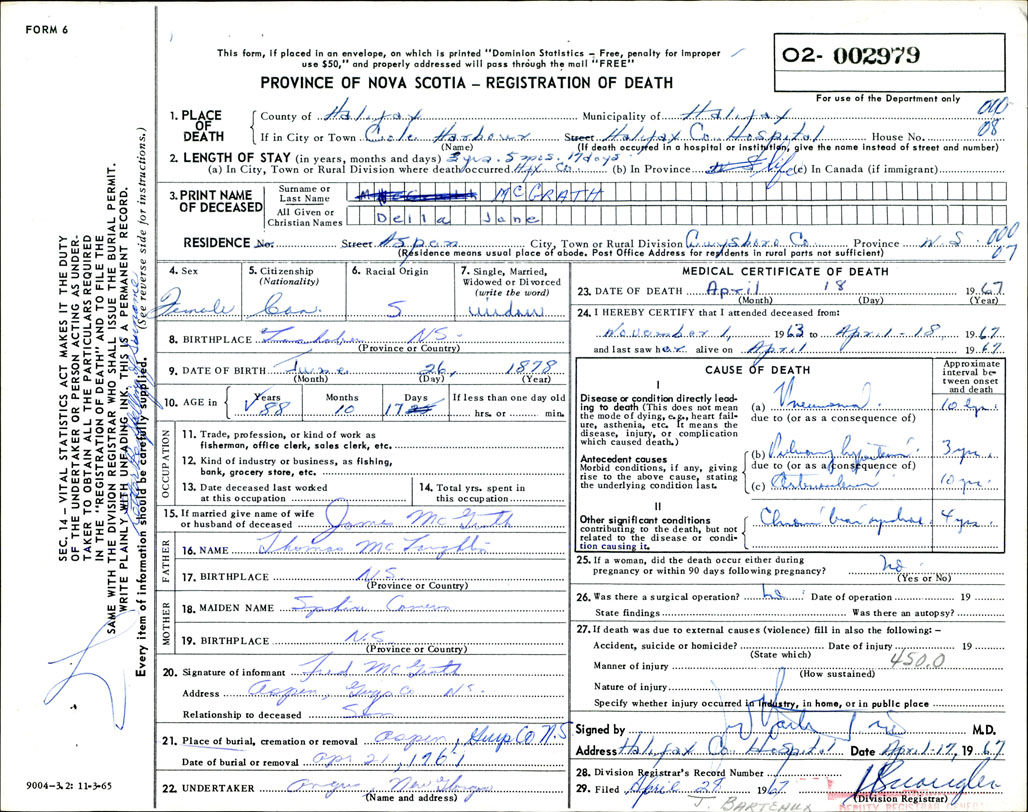 FORM 6
This form, if placed in an envelope, on which is printed "Dominion Statistics – Free, penalty for improper
use $50," and properly addressed will pass through the mail "FREE"
PROVINCE OF NOVA SCOTIA – REGISTRATION OF DEATH
02- 002979
For use of the Department only
000
08
1. PLACE OF DEATH
County of Halifax Municipality of Halifax
If in City or Town Cole Harbour Street Halifax Co. Hospital House No.
(Name) (If death occurred in a hospital or institution, give the name instead of street and number)
2. LENGTH OF STAY (in years, months and days) 3 yrs. 5 mos. 17 days
(a) In City, Town or Rural Division where death occurred Hfx Co. (b) In Province life (c) In Canada (if immigrant)
3. PRINT NAME OF DECEASED
Surname or Last Name McGRATH
All Given or Christian Names Della Jane
RESIDENCE No. Street Aspen City, Town or Rural Division Guysboro Co. Province N.S. 000
07
(Residence means usual place of abode. Post Office Address for residents in rural parts not sufficient)
4. Sex Female
5. Citizenship (Nationality) Can.
6. Racial Origin S
7. Single, Married, Widowed or Divorced (write the word) widow
8. BIRTHPLACE N.S.
(Province or Country)
9. DATE OF BIRTH June 26, 1878
(Month) (Day) (Year)
10. AGE in Years 88 Months 10 Days 17 If less than one day old hrs. or min.
OCCUPATION
11. Trade, profession, or kind of work as
fisherman, office clerk, sales clerk, etc.
12. Kind of industry or business, as fishing,
bank, grocery store, etc.
13. Date deceased last worked
at this occupation
14. Total yrs. spent in
this occupation
15. If married give name of wife
or husband of deceased James McGrath
FATHER
16. NAME Thomas
17. BIRTHPLACE N.S.
(Province or Country)
MOTHER
18. MAIDEN NAME Cameron
19. BIRTHPLACE N.S.
(Province or Country)
20. Signature of informant Fred McGrath
Address Aspen, Guys Co N.S.
Relationship to deceased Son
21. Place of burial, cremation or removal Aspen, Guys Co N.S
Date of burial or removal Apr 21, 1967
22. UNDERTAKER New Glasgow
(Name and address)
MEDICAL CERTIFICATE OF DEATH
23. DATE OF DEATH April 18 1967
(Month) (Day) (Year)
24. I HEREBY CERTIFY that I attended deceased from:
November 1, 1963 to April-18 1967
and last saw her alive on April 1967
CAUSE OF DEATH
Approximate
interval be-
tween onset
and death
I
Disease or condition directly lead-
ing to death (This does not mean
the mode of dying, e.g., heart fail-
ure, asthenia, etc. It means the
disease, injury, or complication
which caused death.)
(a) Pneumonia
due to (or as a consequence of)
Antecedent causes
Morbid conditions, if any, giving
rise to the above cause, stating
the underlying condition last.
(b) 3 yrs.
due to (or as a consequence of)
(c) 10 yrs.
II
Other significant conditions
contributing to the death, but not
related to the disease or condi-
tion causing it.
Chronic brain syndrome 4 yrs.
25. If a woman, did the death occur either during
pregnancy or within 90 days following pregnancy? No
(Yes or No)
26. Was there a surgical operation? No Date of operation 19
State findings Was there an autopsy?
27. If death was due to external causes (violence) fill in also the following: –
Accident, suicide or homicide? Date of injury 19
(State which) 450.0
Manner of injury
(How sustained)
Nature of injury
Specify whether injury occurred in industry, in home, or in public place
Signed by M.D.
Address Halifax Co Hospital Date April-17, 1967
28. Division Registrar's Record Number
29. Filed April 28 1967
(Division Registrar)
DEPUTY REGISTRAR
J. BARTEAUX
SEC. 14 – VITAL STATISTICS ACT MAKES IT THE DUTY
OF THE UNDERTAKER OR PERSON ACTING AS UNDER-
TAKER TO OBTAIN ALL THE PARTICULARS REQUIRED
IN THE "REGISTRATION OF DEATH" AND TO FILE THE
SAME WITH THE DIVISION REGISTRAR WHO SHALL ISSUE THE BURIAL PERMIT.
WRITE PLAINLY WITH UNFADING INK. THIS IS A PERMANENT RECORD.
Every item of information should be carefully supplied. (See reverse side for instructions.)
9004-3.2: 11-3-65